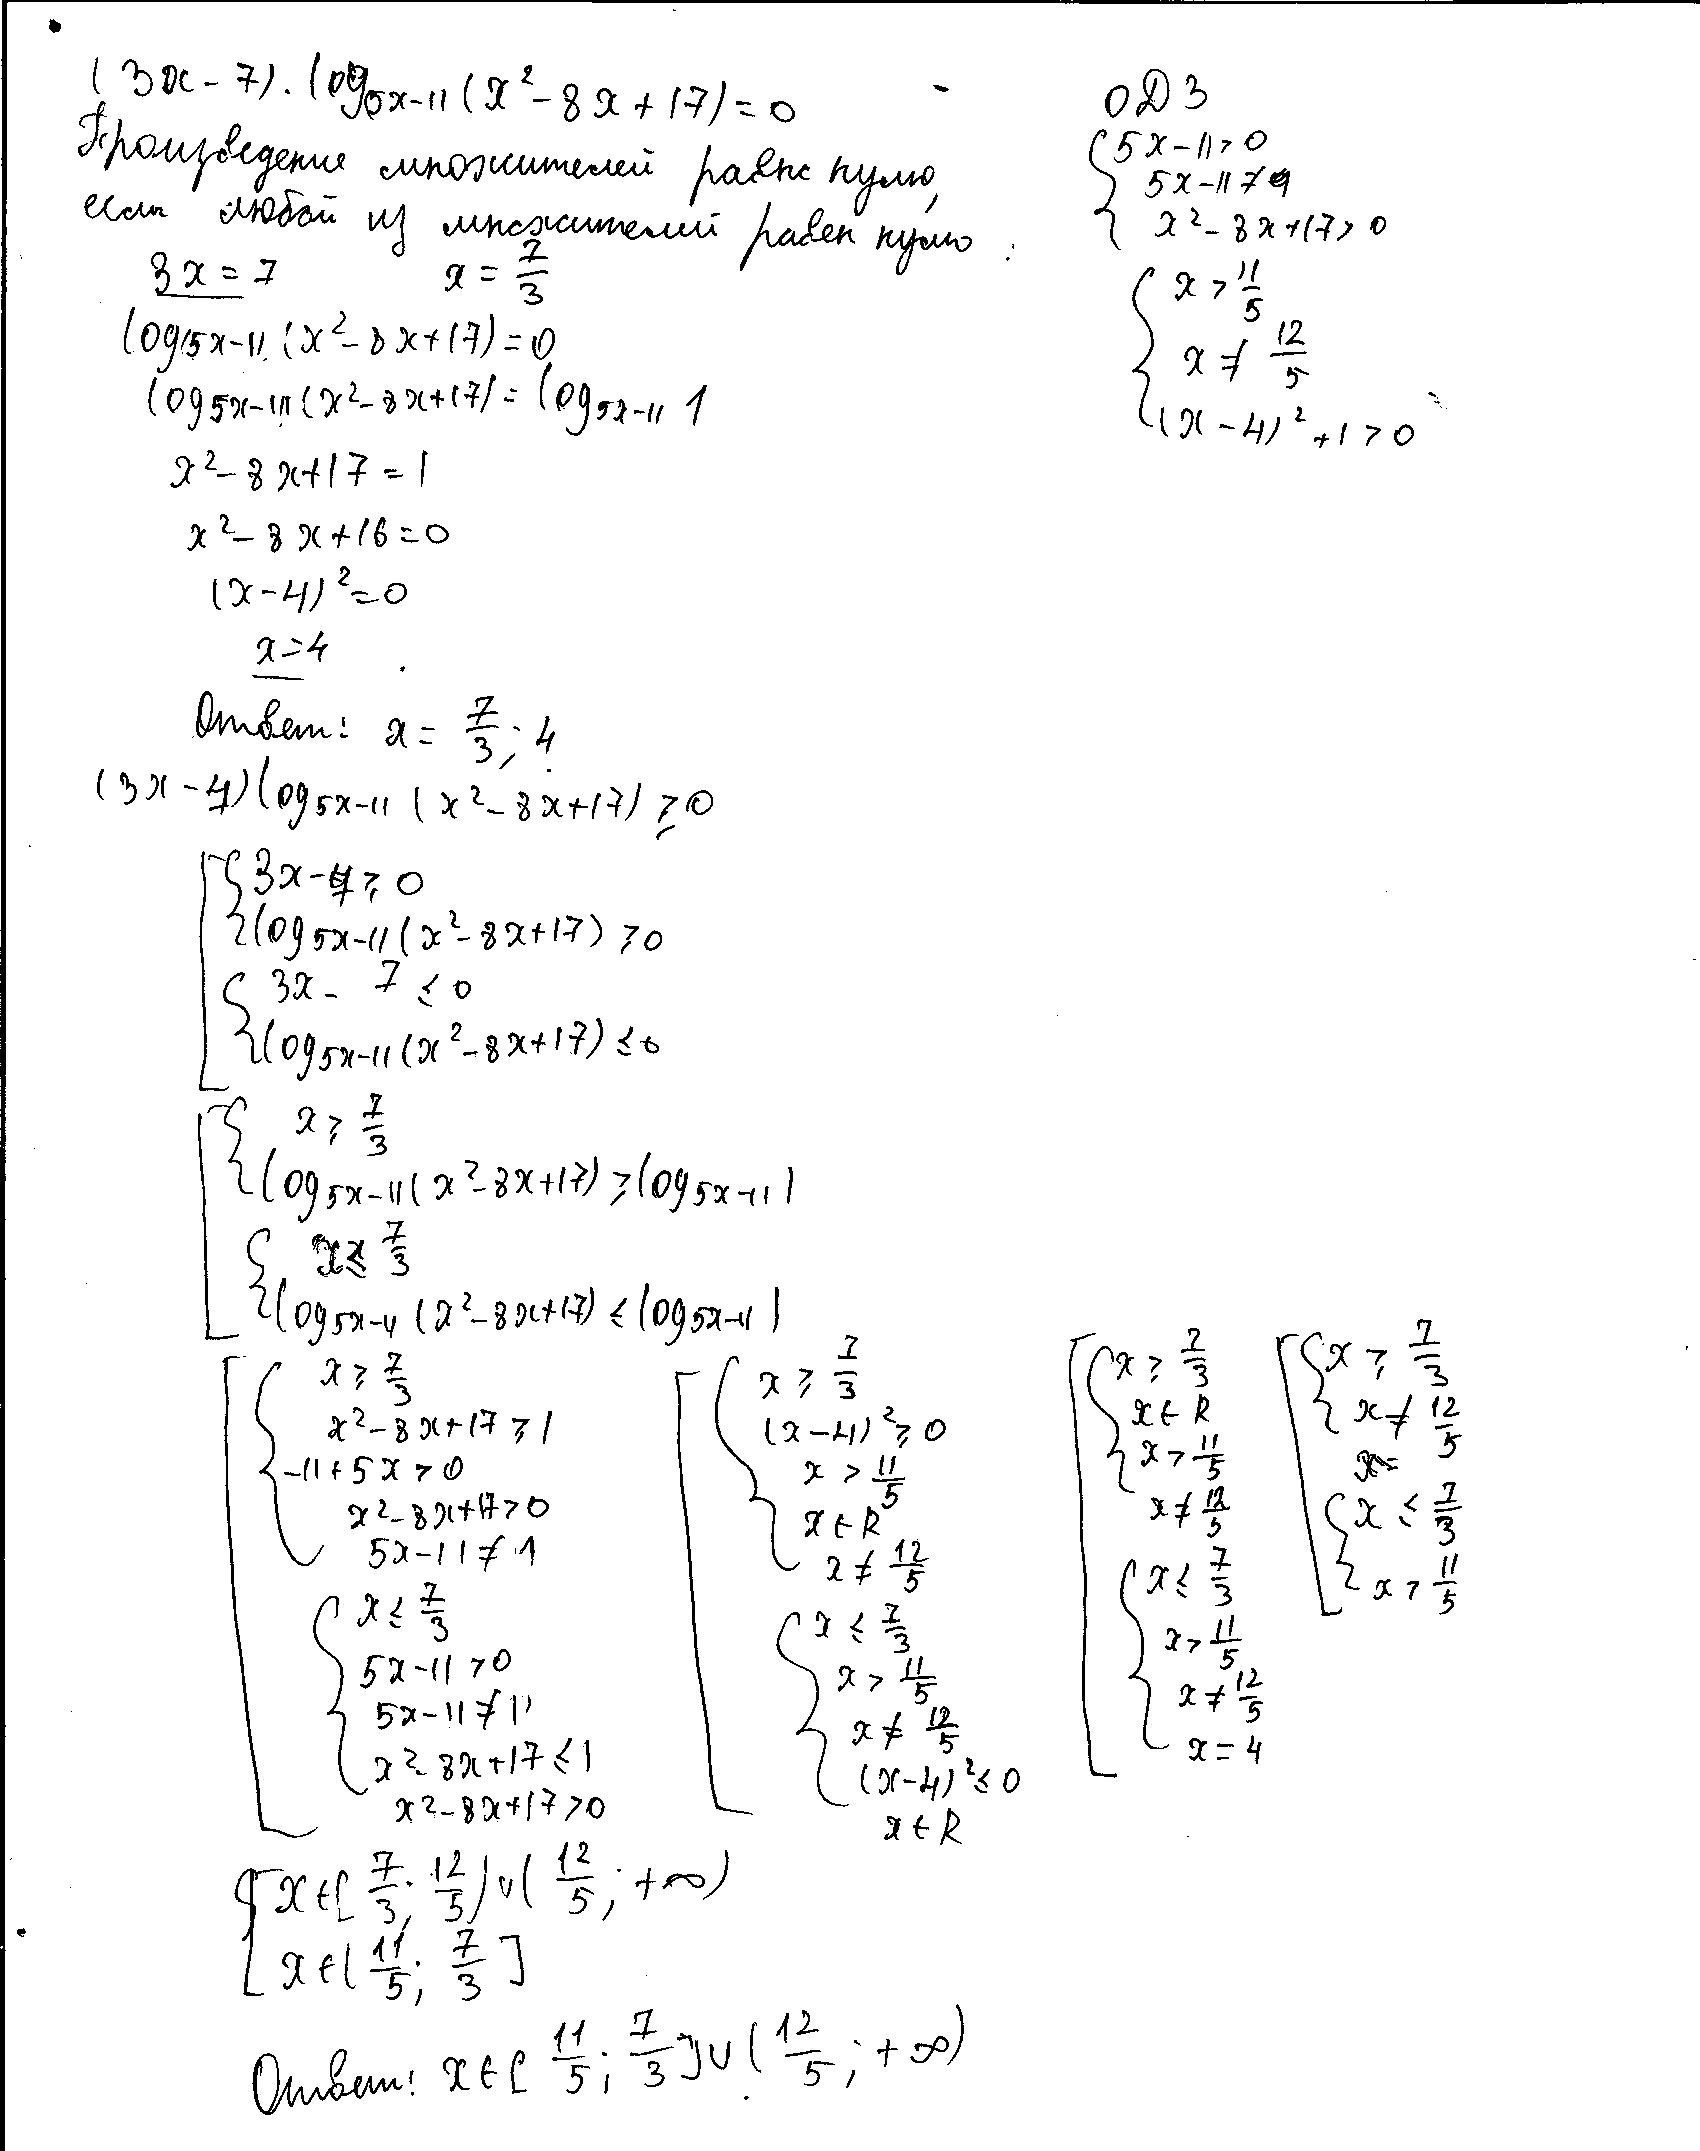 (3x-7)·log_{5x-11}(x²-8x+17)=0
Произведение множителей равно нулю,
если любой из множителей равен нулю.
3x=7 x=7/3
log_{5x-11}(x²-8x+17)=0
log_{5x-11}(x²-8x+17)=log_{5x-11}1
x²-8x+17=1
x²-8x+16=0
(x-4)²=0
x=4
Ответ: x=7/3; 4
ОДЗ
5x-11>0
5x-11≠1
x²-8x+17>0
x>11/5
x≠12/5
(x-4)²+1>0
(3x-7)log_{5x-11}(x²-8x+17)≥0
3x-7≥0
log_{5x-11}(x²-8x+17)≥0
3x-7≤0
log_{5x-11}(x²-8x+17)≤0
x≥7/3
log_{5x-11}(x²-8x+17)≥log_{5x-11}1
x≤7/3
log_{5x-11}(x²-8x+17)≤log_{5x-11}1
x≥7/3
x²-8x+17≥1
-11+5x>0
x²-8x+17>0
5x-11≠1
x≤7/3
5x-11>0
5x-11≠1
x²-8x+17≤1
x²-8x+17>0
x≥7/3
(x-4)²≥0
x>11/5
x∈R
x≠12/5
x≤7/3
x>11/5
x≠12/5
(x-4)²≤0
x∈R
x≥7/3
x∈R
x>11/5
x≠12/5
x≤7/3
x>11/5
x≠12/5
x=4
x≥7/3
x≠12/5
x=
x≤7/3
x>11/5
x∈[7/3; 12/5)∪(12/5; +∞)
x∈(11/5; 7/3]
Ответ: x∈[11/5; 7/3]∪(12/5; +∞)